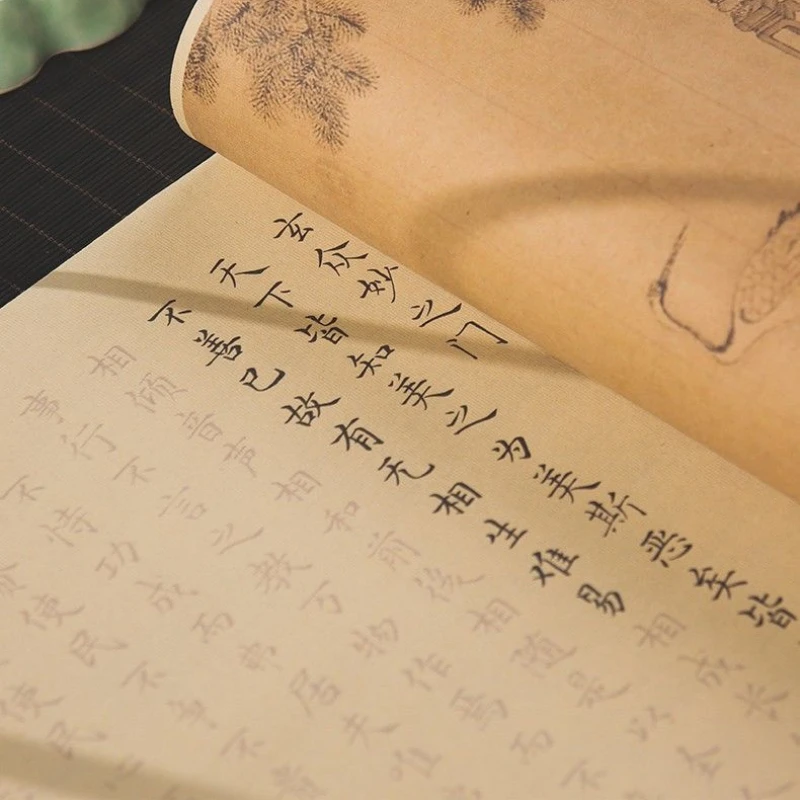 玄众妙之门
天下皆知美之为美斯恶矣皆
不善已故有无相生难易相成长
相倾音声相和前後相随是以
事行不言之教万物作焉而不
不恃功成而弗居夫唯
使民不争不贵
使民